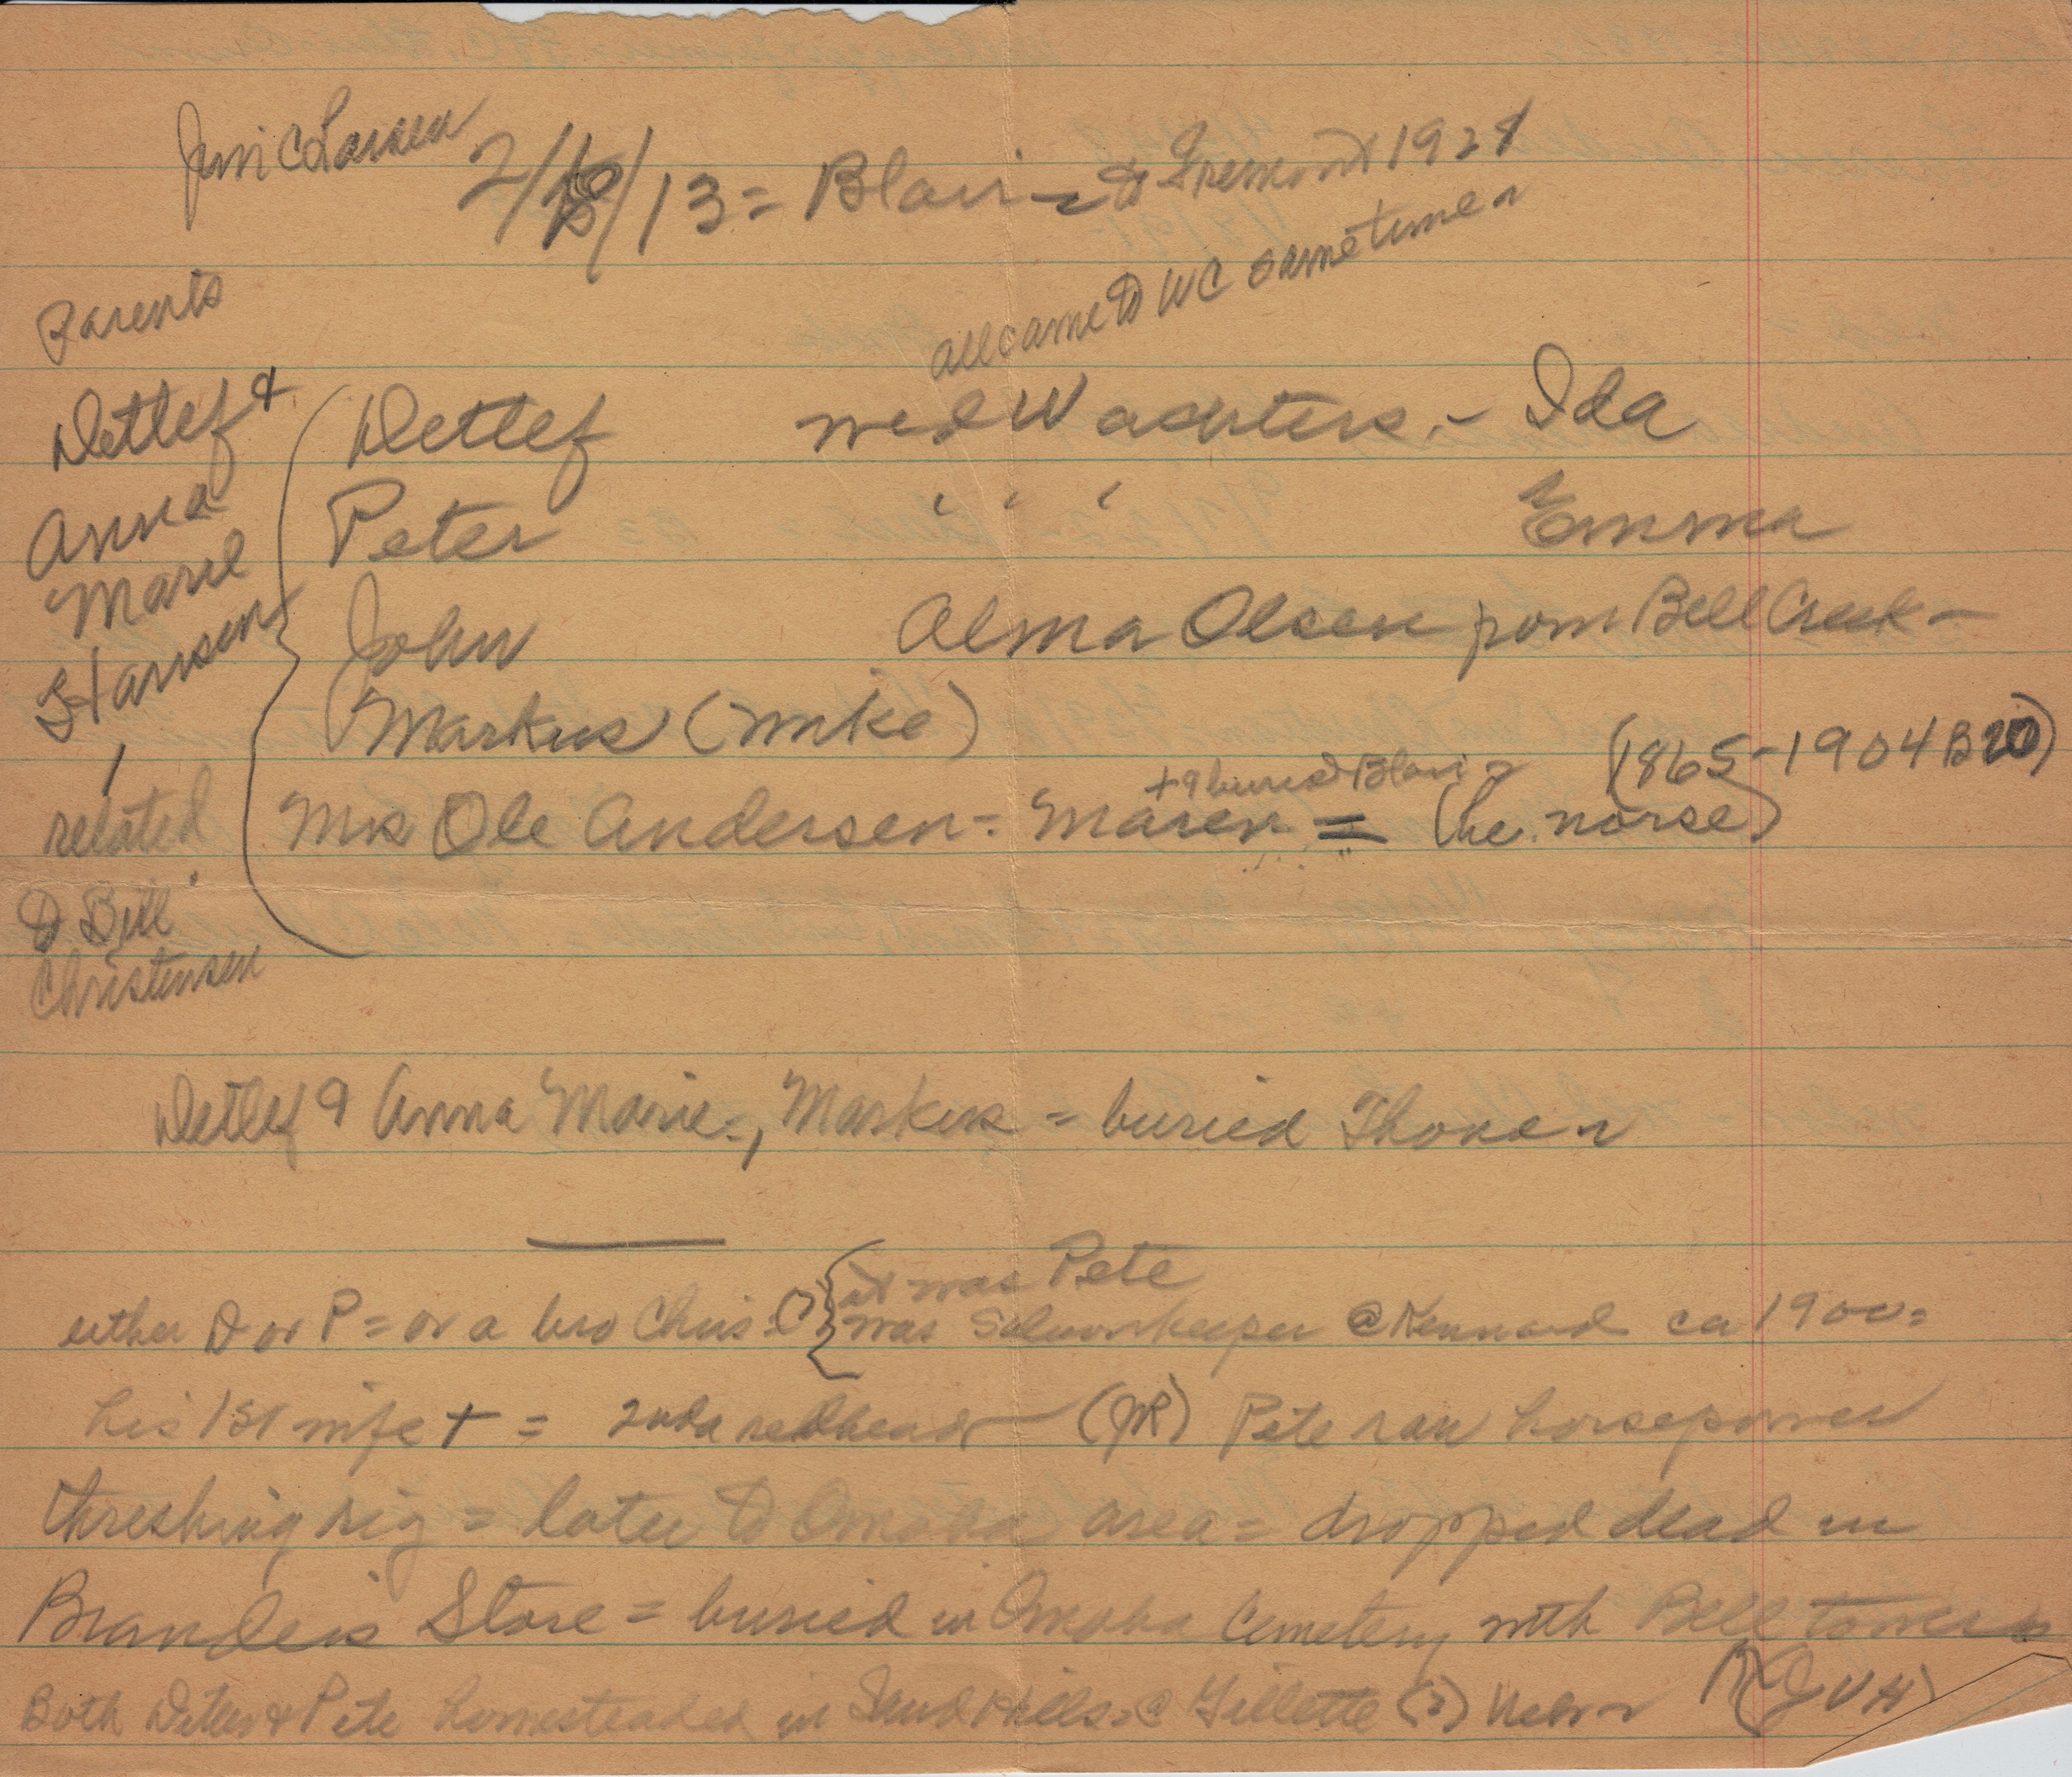 Jim C Larsen 2/18/13 = Blair to Fremont 1928
all came to WC sometimes
Parents
Detlef &
Anna
Marie
Hansen
related
to Bill
Christensen
Detlef wed Wachters. - Ida
Peter " " " Emma
John Alma Olsen from Bell Creek -
Markus (Mike)
+ & buried Blair (1865-1904 B20)
Mrs Ole Andersen - Maren = (he norse)
Detlef & Anna Marie -, Markus = buried
either D or P = or a bro Chris. { it was Pete
was Saloonkeeper @ Kennard ca 1900 =
his 1st wife + = 2nd a redhead (JR) Pete ran horsepower
threshing rig = later to Omaha area = dropped dead in
Brandeis Store = buried in Omaha Cemetery with Bell tower
Both Detlef & Pete homesteaded in Sandhills @ Gillette (?) Nebr